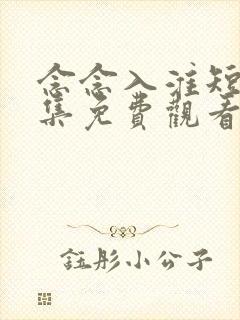 念念入淮短
集免費觀看
鈺彤小公子